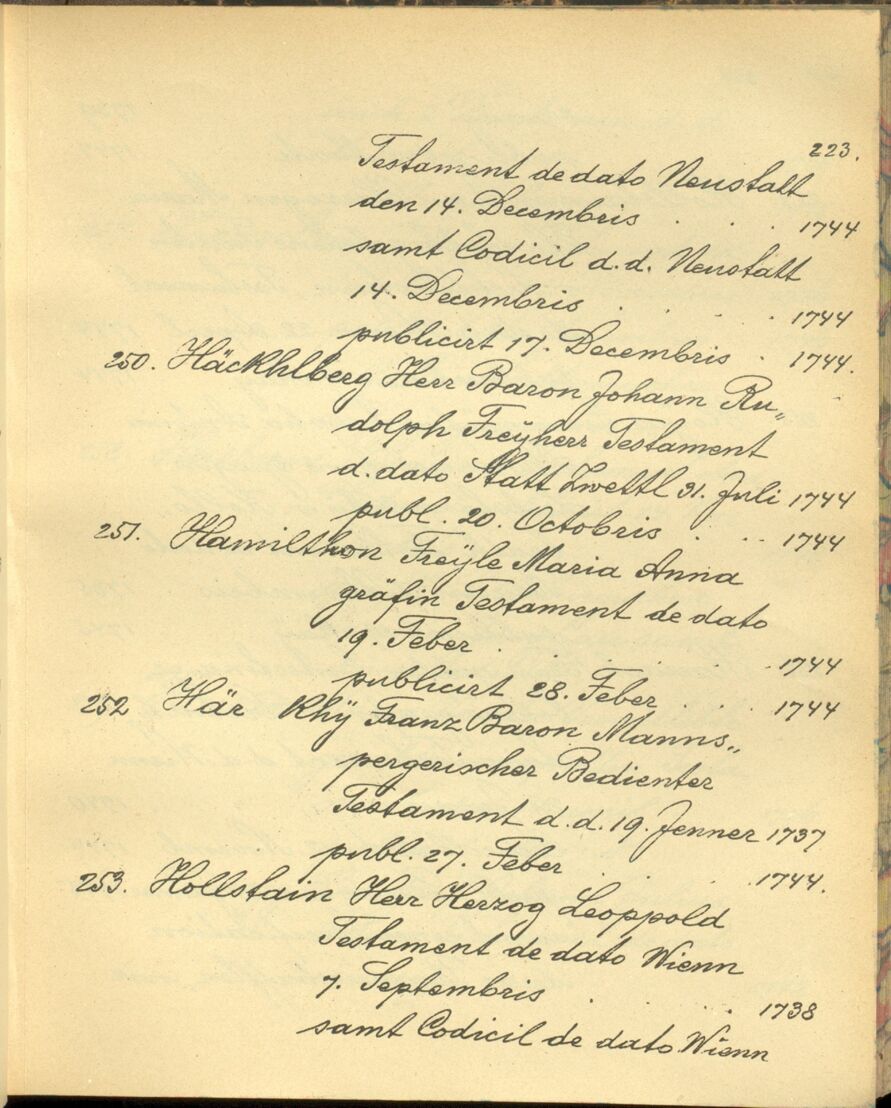 223.
Testament de dato Neustatt
den 14. Decembris . . . 1744
samt Codicil d. d. Neustatt
14. Decembris . . . . 1744
publicirt 17. Decembris . 1744.
250. Häckhlberg Herr Baron Johann Ru„
dolph Freÿherr Testament
d. dato Statt Zwettl 31. Juli 1744
publ. 20. Octobris . . . . 1744
251. Hamilthon Freÿle Maria Anna
gräfin Testament de dato
19. Feber . . . . . . 1744
publicirt 28. Feber . . . 1744
252 Här Khÿ Franz Baron Manns„
pergerischer Bedienter
Testament d. d. 19. Jenner 1737
publ. 27. Feber . . . . 1744.
253. Hollstain Herr Herzog Leoppold
Testament de dato Wienn
7. Septembris . . . . 1738
samt Codicil de dato Wienn